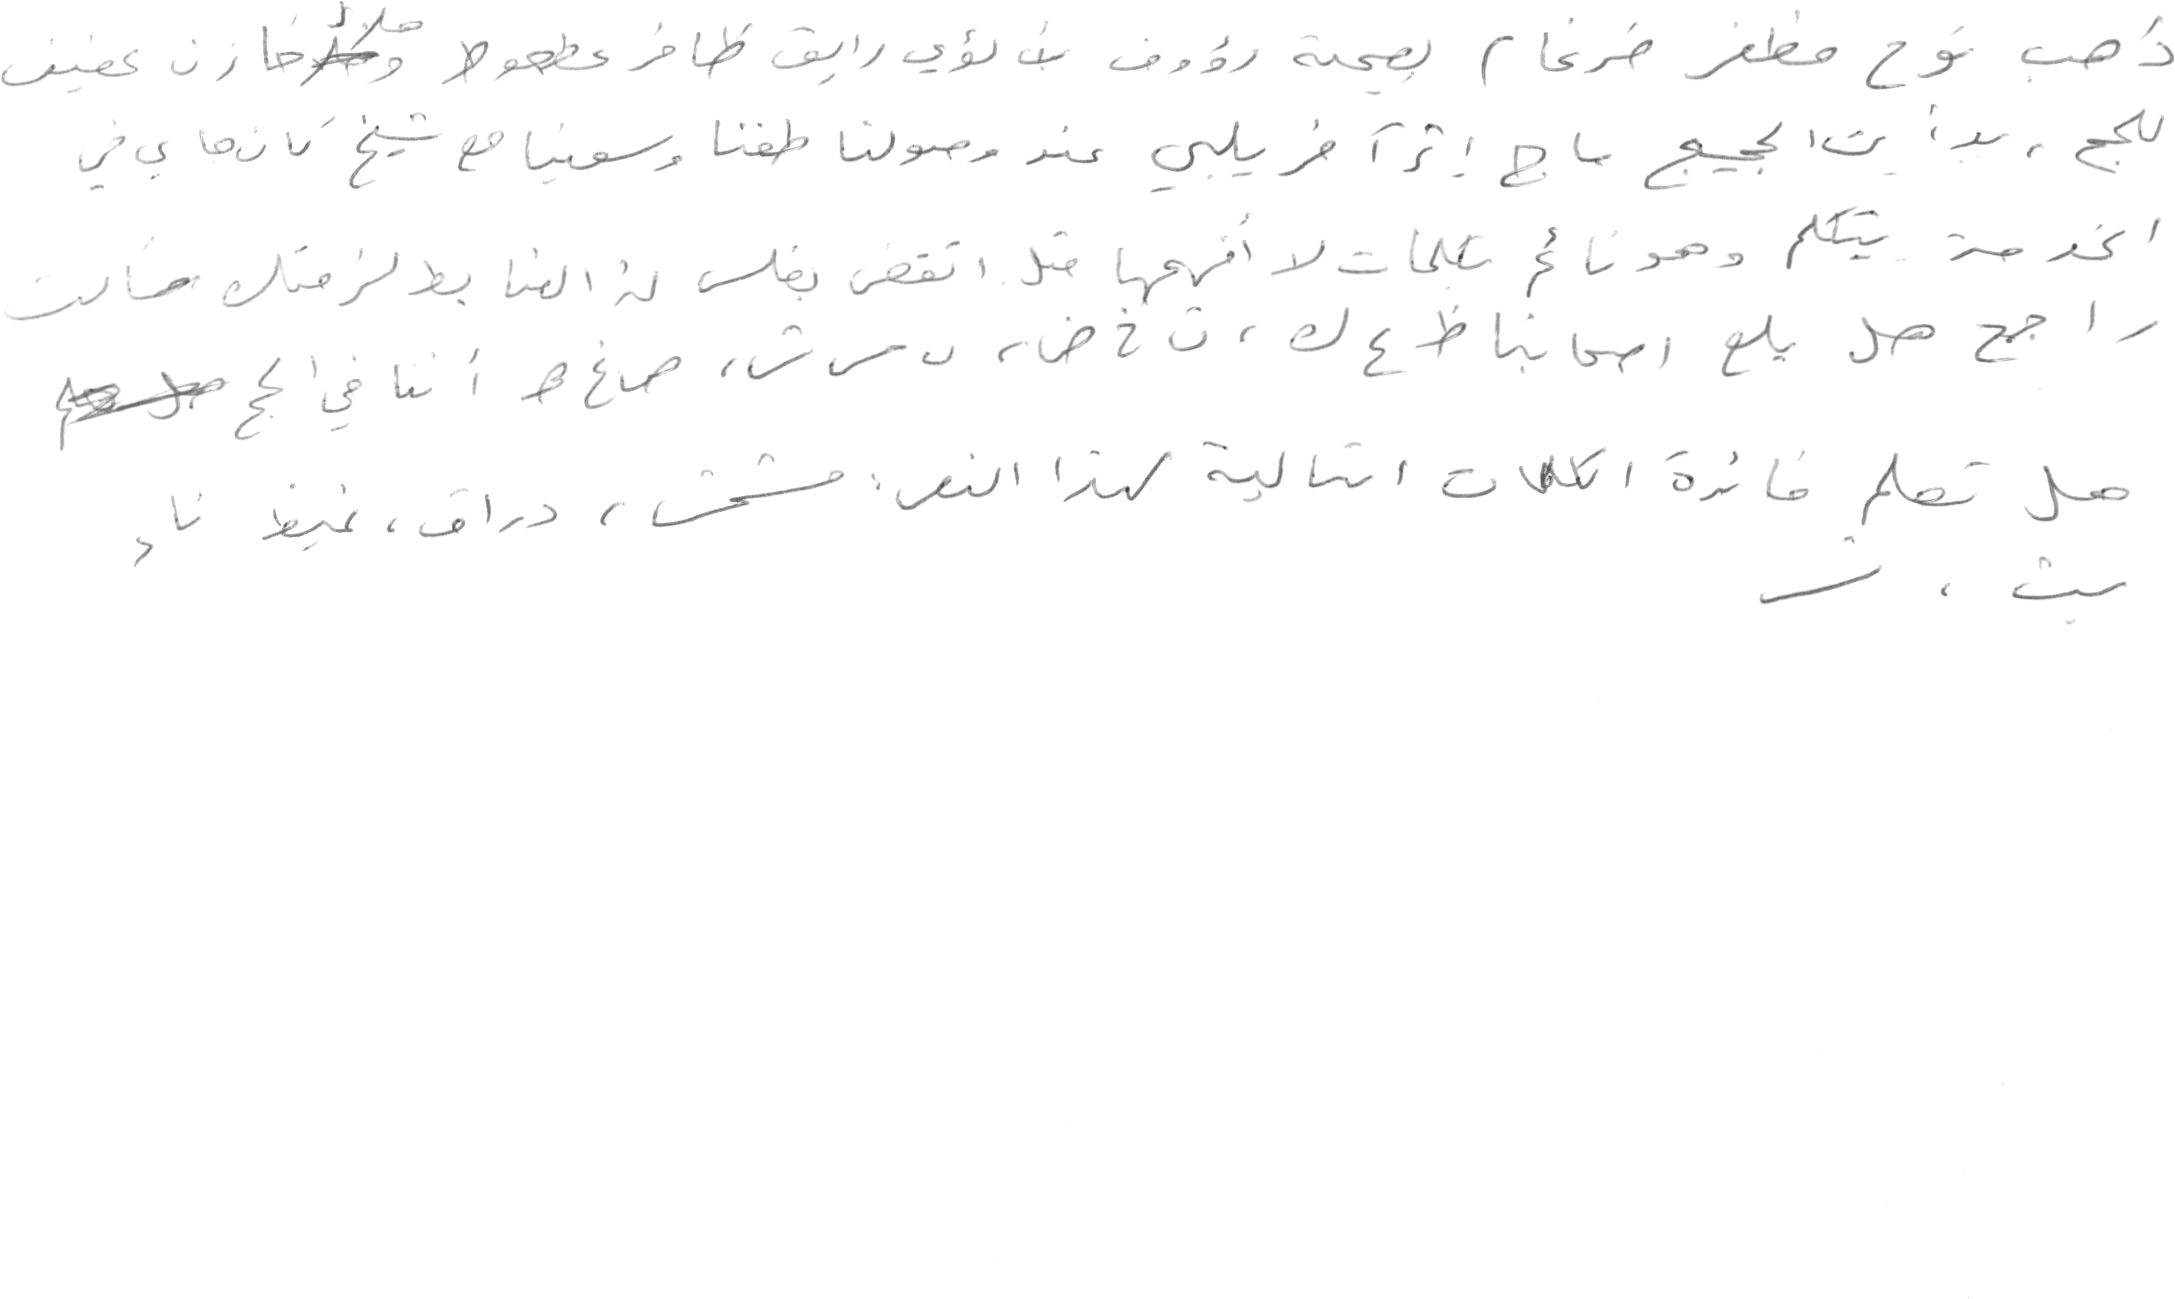 ذهب نوح مظفر ضرغام بصحبة رؤوف بن لؤي رايق ظافر عطعوط وهلال خازن عفيف
للحج ، بدأت الحجيج حاج إثر آخر يلبي عند وصولنا طفنا وسعينا مع شيخ كان معي في
الخدمة يتكلم وهو نائم بكلمات لا أفهمها مثل انقض بفلس لذ الضابط لزمتك ضالت
راجح هل بلع اصحابنا ظ ع ك ، ث خ ض ، ل س ش ، ص غ ط أننا في الحج
هل تعلم فائدة الكلمات التالية لهذا النص : مشمش ، دراق ، غيظ نا
بيث ، ش